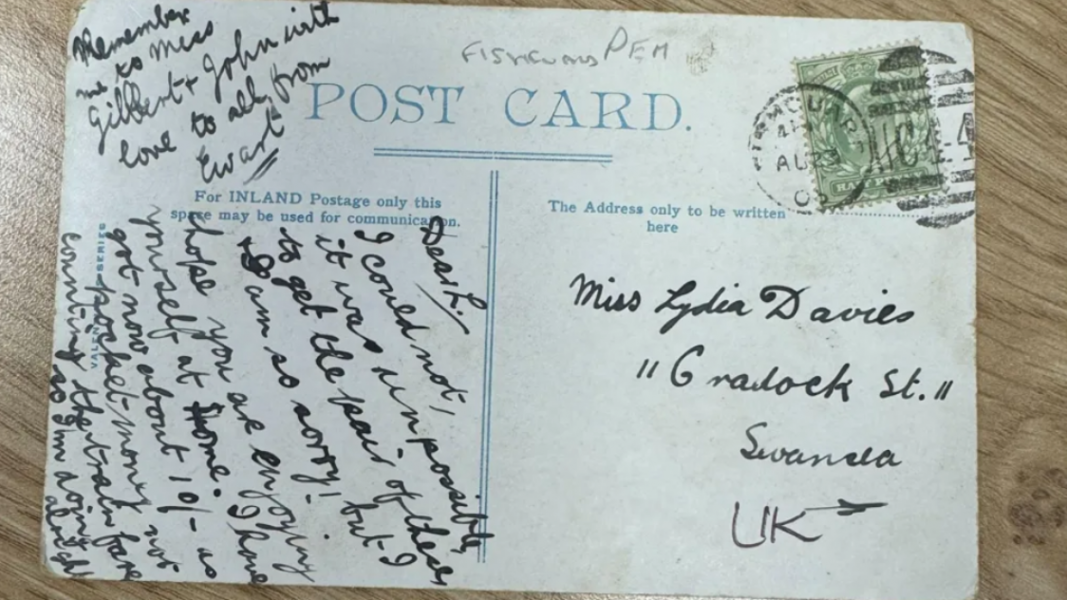 Remember
me to Miss
Gilbert & John with
love to all from
Ewart
FISHGUARD PEM
POST CARD.
AU 23
For INLAND Postage only this
space may be used for communication.
The Address only to be written
here
Dear L.
I could not,
it was unpossible,
to get the pair of these, but I
am so sorry! I
hope you are enjoying
yourself at Home. I have
got now about 10/- as
pocket-money not
counting the train fare
so I'm doing alright
SERIES
Miss Lydia Davies
"Cradock St."
Swansea
UK